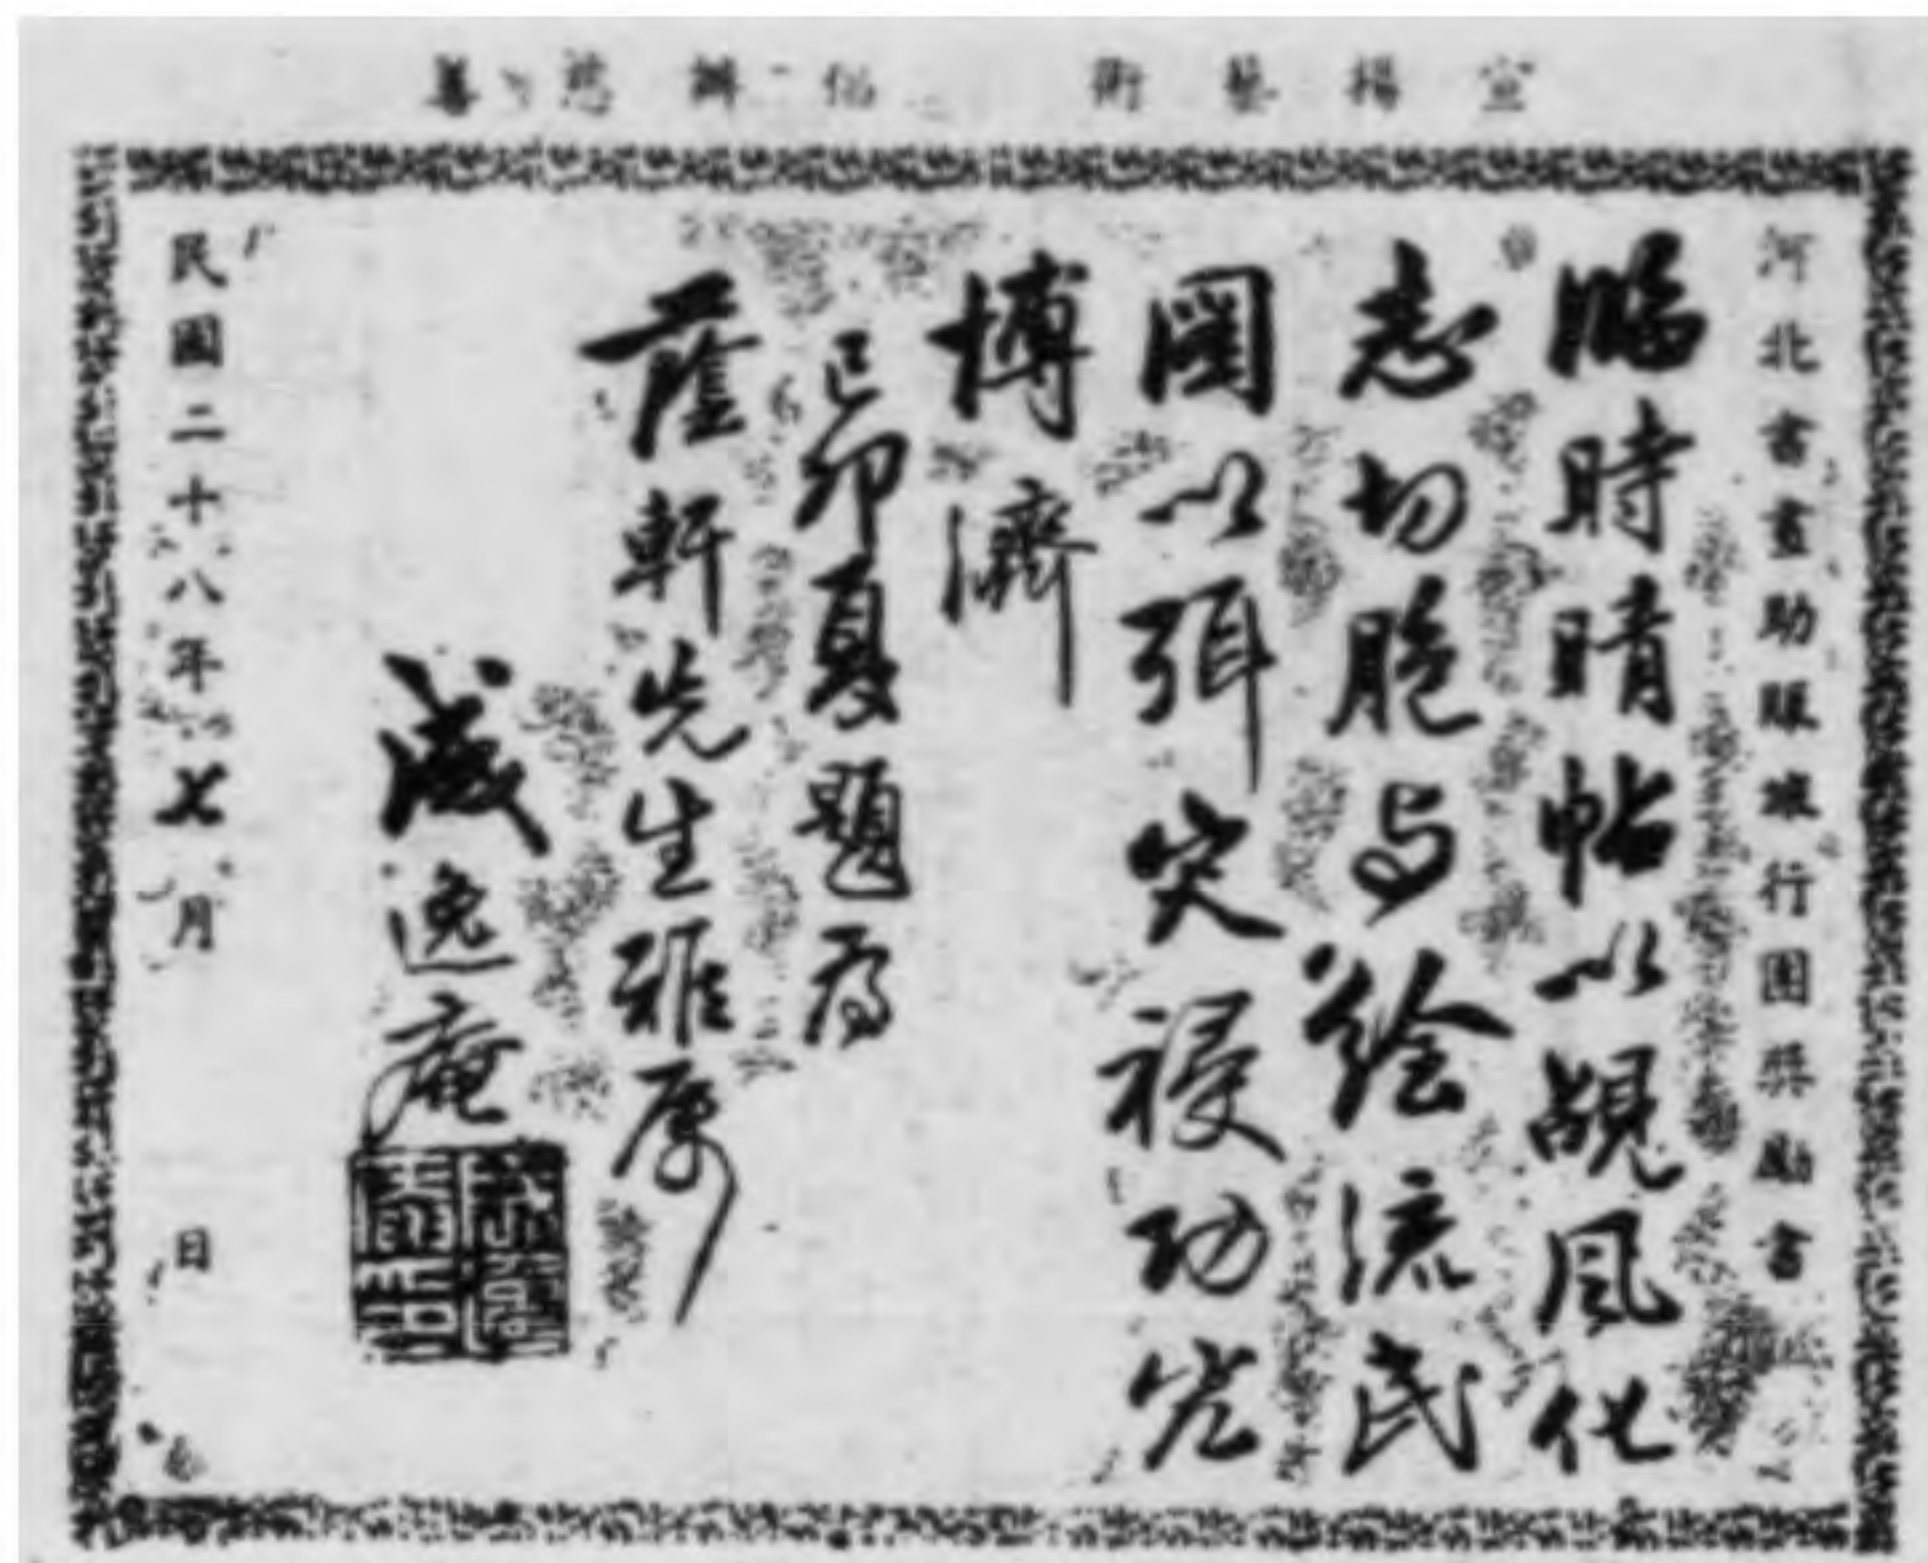 宣揚藝術 倡辦慈善
河北書畫助賑旅行團獎勵書
臨時晴帖以覘風化
志切胞与繪流民
圖以弭災祲功宏
博濟
己卯夏題為
蔭軒先生雅属
成逸庵
民國二十八年七月 日